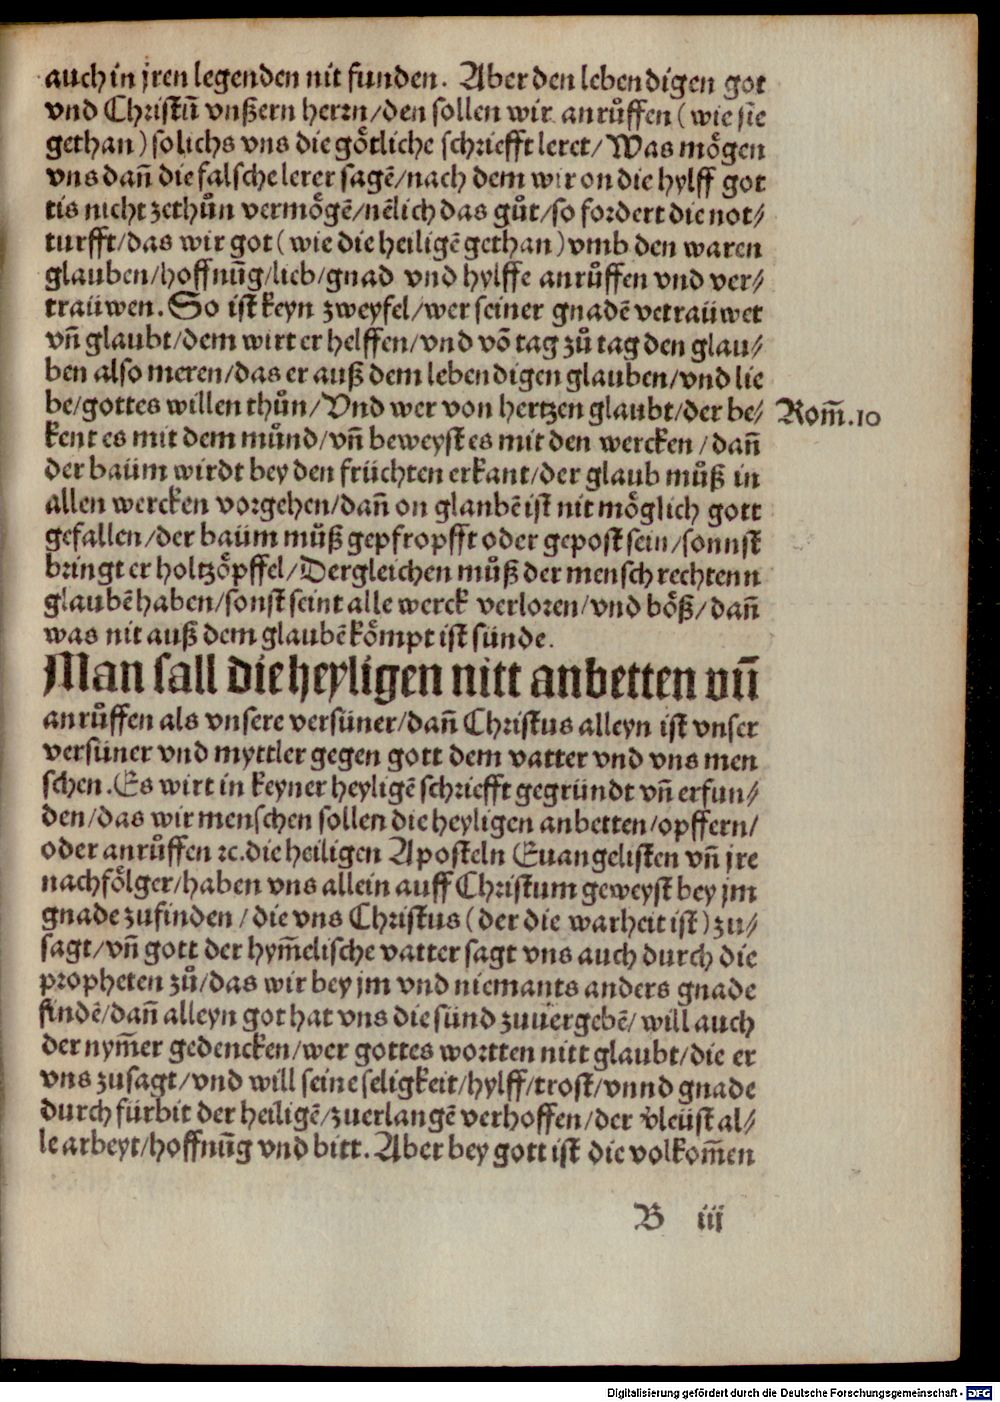 auch in jren legenden nit funden. Aber den lebendigen got
vnd Christū vnßern herrn/den sollen wir anrůffen (wie sie
gethan) solichs vns die götliche schriefft leret/Was mögen
vns dañ die falsche lerer sagē/nach dem wir on die hylff got
tis nicht zethůn vermögē/nēlich das gůt/so fordert die not⸗
turfft/das wir got (wie die heiligē gethan) vmb den waren
glauben/hoffnūg/lieb/gnad vnd hylffe anrůffen vnd ver⸗
traüwen. So ist keyn zweyfel/wer seiner gnadē vetraüwet
vñ glaubt/dem wirt er helffen/vnd vō tag zů tag den glau⸗
ben also meren/das er auß dem lebendigen glauben/vnd lie
be/gottes willen thůn/Vnd wer von hertzen glaubt/der be⸗
Rom̄.10
kent es mit dem můnd/vñ beweyst es mit den wercken/dañ
der baüm wirdt bey den früchten erkant/der glaub můß in
allen wercken vorgehen/dañ on glanbē ist nit möglich gott
gefallen/der baüm můß gepfropfft oder gepost sein/sonnst
bringt er holtzöpffel/Dergleichen můß der mensch rechtenn
glaubē haben/sonst seint alle werck verloren/vnd böß/dañ
was nit auß dem glaubē kömpt ist sünde.
Man sall die heyligen nitt anbetten vñ
anrůffen als vnsere versüner/dañ Christus alleyn ist vnser
versüner vnd myttler gegen gott dem vatter vnd vns men
schen. Es wirt in keyner heyligē schriefft gegründt vñ erfun⸗
den/das wir menschen sollen die heyligen anbetten/opffern/
oder anrůffen ꝛc. die heiligen Aposteln Euangelisten vñ jre
nachfölger/haben vns allein auff Christum geweyst bey jm
gnade zufinden/die vns Christus (der die warheit ist) zu⸗
sagt/vñ gott der hym̄elische vatter sagt vns auch durch die
propheten zů/das wir bey jm vnd niemants anders gnade
findē/dañ alleyn got hat vns die sünd zuuergebē/will auch
der nym̄er gedencken/wer gottes wortten nitt glaubt/die er
vns zusagt/vnd will seine seligkeit/hylff/trost/vnnd gnade
durch fürbit der heiligē/zuerlangē verhoffen/der v̓leüst al⸗
le arbeyt/hoffnūg vnd bitt. Aber bey gott ist die volkom̄en
B iij
Digitalisierung gefördert durch die Deutsche Forschungsgemeinschaft - DFG